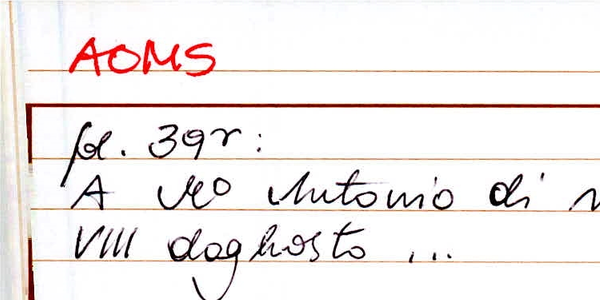 AOMS
fol. 39r:
A Mo Antonio di
VIII daghosto ...